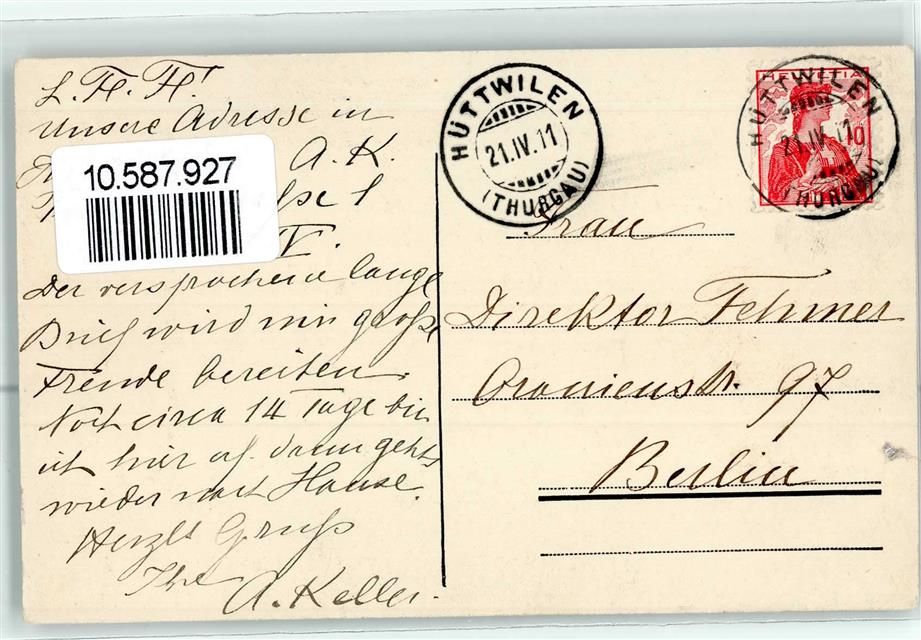 L. F. F!
Unsere Adresse in
A. K.
10.587.927
V.
Der versprochene lange
Brief wird mir große
Freude bereiten.
Noch circa 14 Tage bin
ich hier
dann geht's
wieder nach Hause.
Herzl. Gruß
Ihre
A. Keller.
HÜTTWILEN
21.IV.11
(THURGAU)
HELVETIA
10
HÜTTWILEN
21.IV.11
(THURGAU)
Frau
Direktor Fehmer
Oranienstr. 97
Berlin